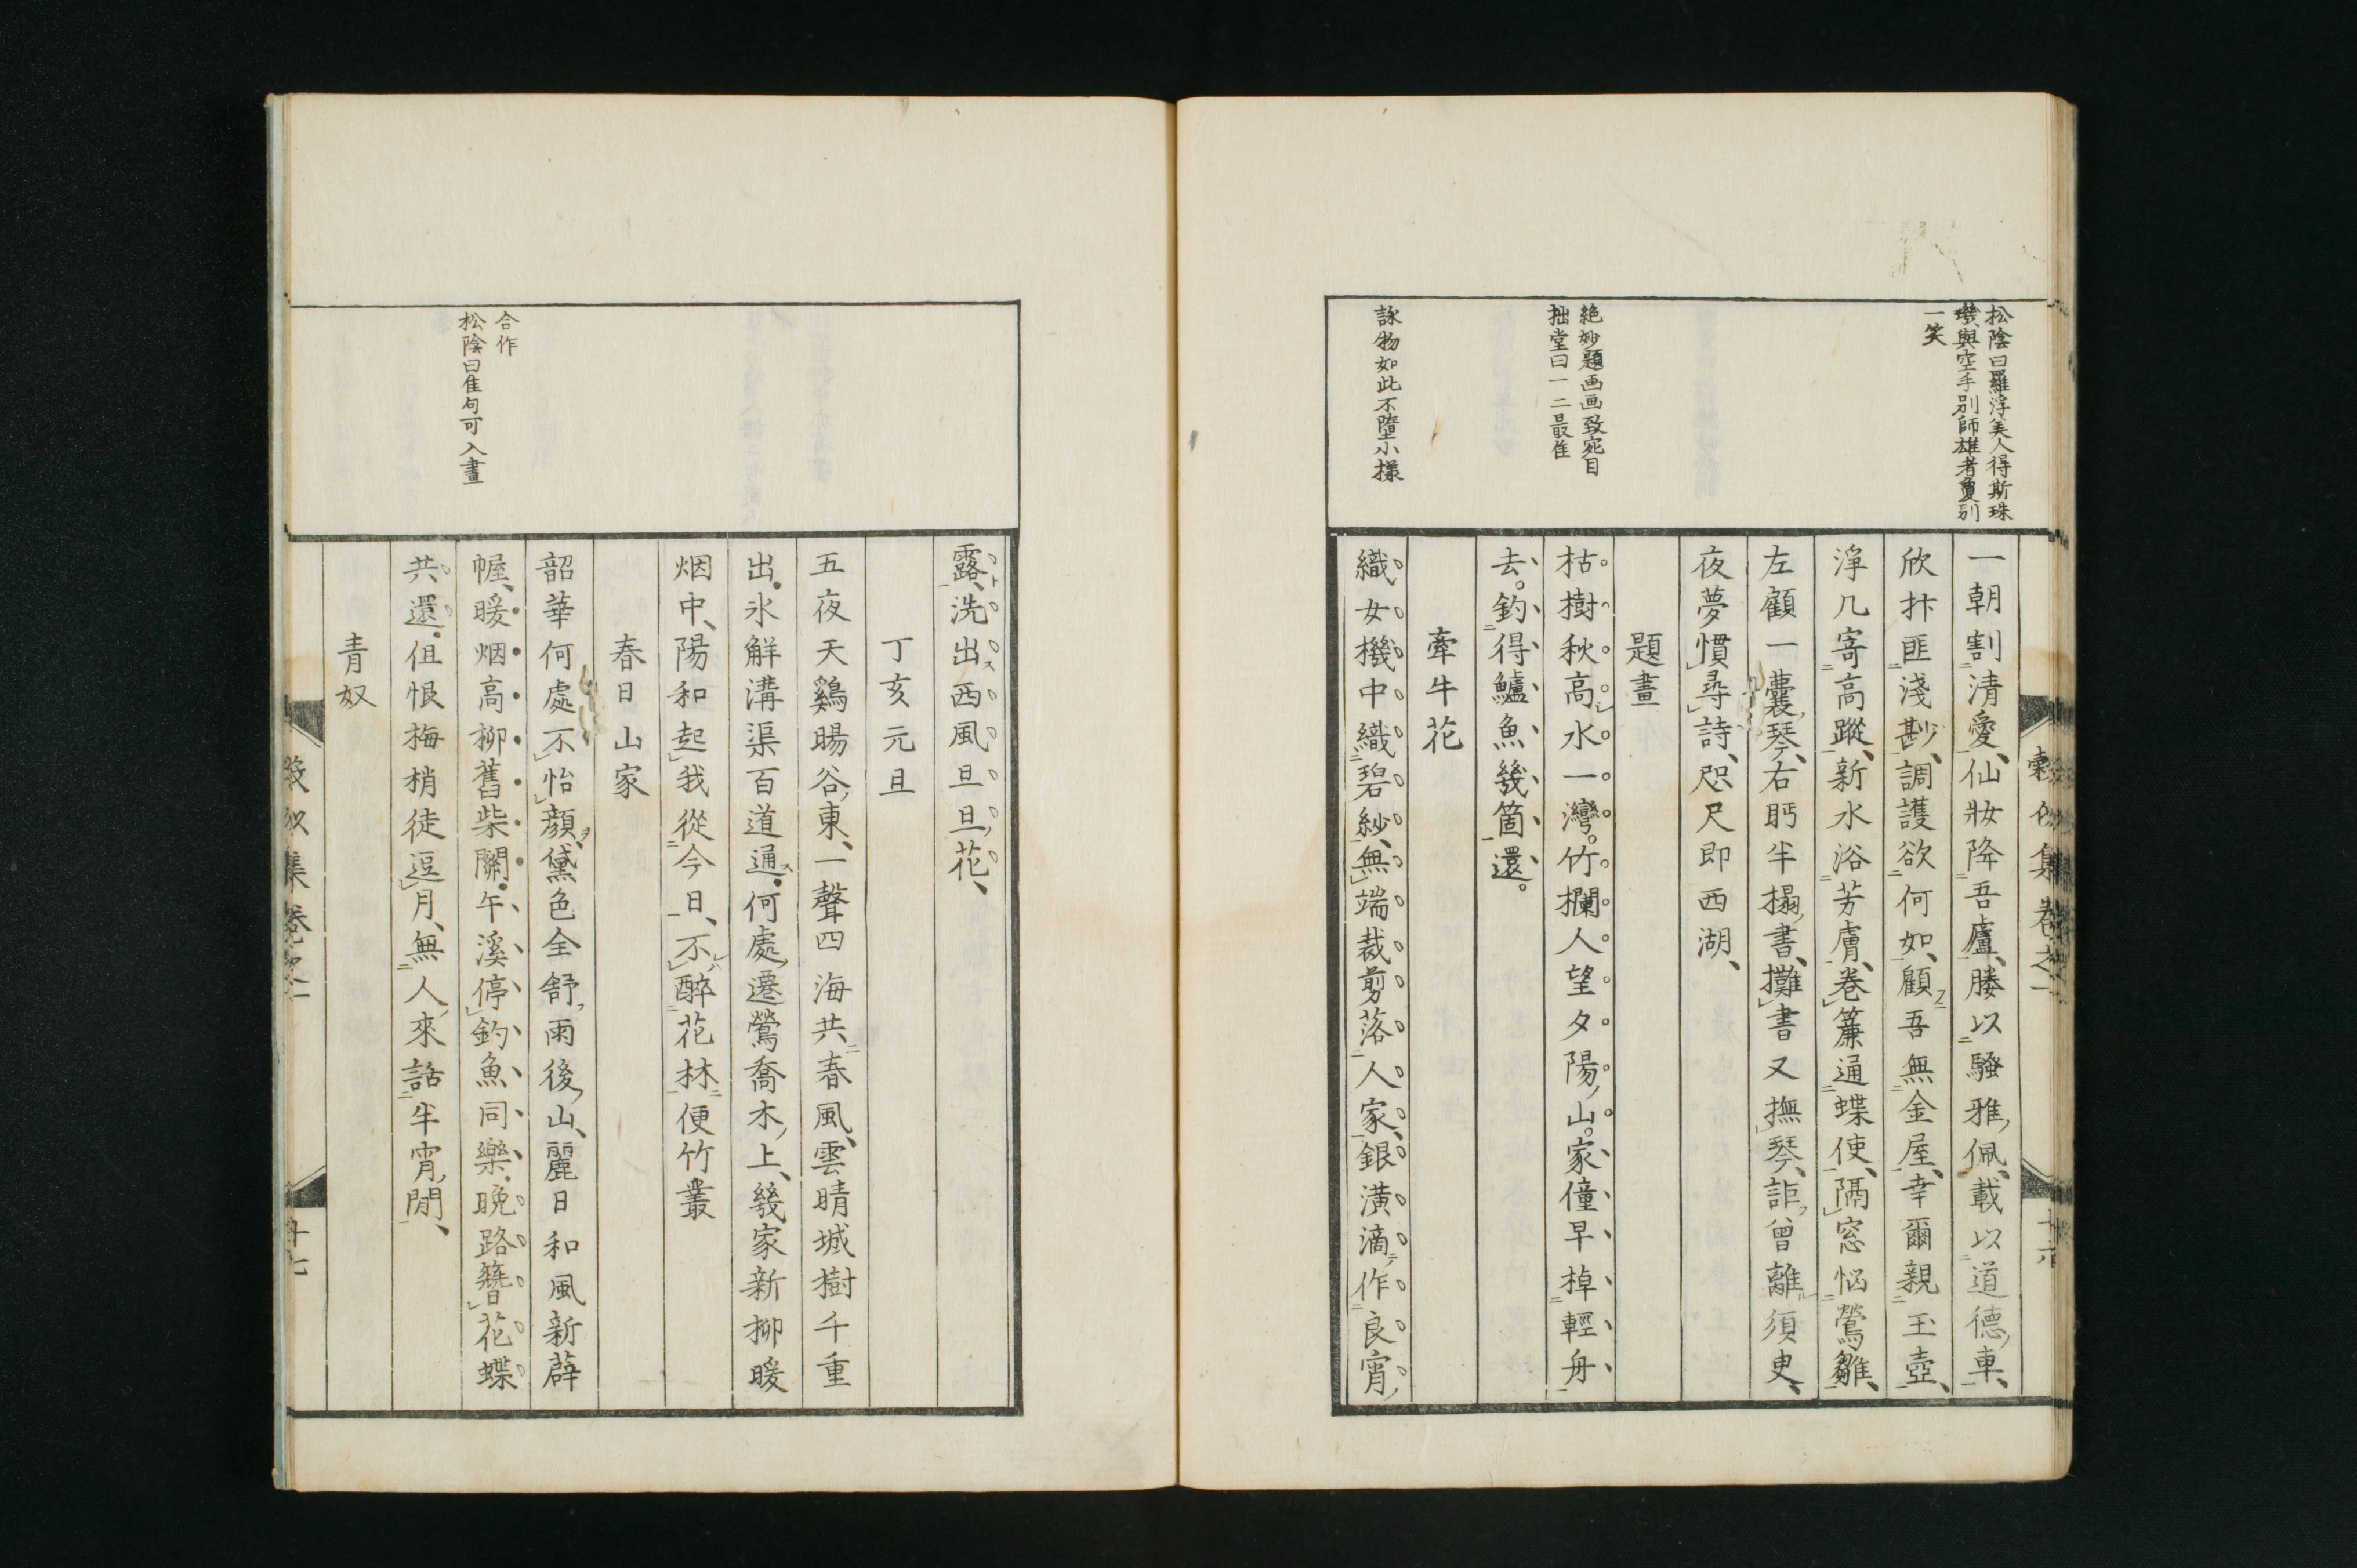 松陰曰羅浮美人得斯珠
璣與空手別師雄者夐別
一笑
絶妙題画画致宛目
拙堂曰一二最隹
詠物如此不墮小樣
一朝割清愛仙妝降吾廬媵以騷雅佩載以道德車
欣抃匪淺尠調護欲何如顧吾無金屋幸爾親玉壺
淨几寄高蹤新水浴芳膚卷簾通蝶使隔窓惱鶯雛
左顧一囊琴右眄半搨書攤書又撫琴詎曾離須臾
夜夢慣尋詩咫尺即西湖
題畫
枯樹秋高水一灣竹欄人望夕陽山家僮早棹輕舟
去釣得鱸魚幾箇還
牽牛花
織女機中織碧紗無端裁剪落人家銀潢滴作良宵
集卷之一
十六
露洗出西風旦旦花
丁亥元旦
五夜天鷄暘谷東一聲四海共春風雲晴城樹千重
出氷解溝渠百道通何處遷鶯喬木上幾家新柳暖
烟中陽和起我從今日不醉花林便竹叢
春日山家
韶華何處不怡顏黛色全舒雨後山麗日和風新薜
幄暖烟高柳舊柴關午溪停釣魚同樂晚路簪花蝶
共還但恨梅梢徒逗月無人來話半宵閒
青奴
合作
松陰曰隹句可入畫
集卷之一
十七